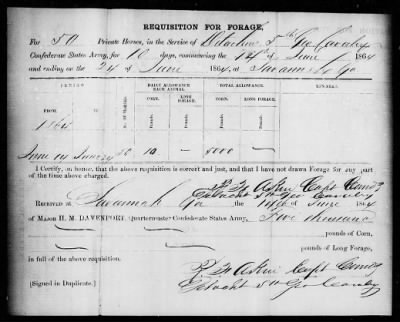 REQUISITION FOR FORAGE,
For 50 Private Horses, in the Service of Detachmt 5th Geo Cavalry
Confederate States Army, for 10 days, commencing the 14th of June 1864
and ending on the 24 of June 1864, at Savannah Ga
PERIOD
No. of Horses.
DAILY ALLOWANCE EACH ANIMAL
TOTAL ALLOWANCE
CORN.
CORN.
Pounds.
Pounds.
Pounds.
Pounds.
1864
June 14 June 24 50 10 — 5000 —
I Certify, on honor, that the above requisition is correct and just, and that I have not drawn Forage for any part
of the time above charged.
Capt Comdg
Detacht 5th Geo Cavalry
Received at Savannah Ga the 14th of June 1864
of Major H. M. DAVENPORT, Quartermaster Confederate States Army, Five thousand
pounds of Corn,
pounds of Long Forage,
in full of the above requisition.
Capt Comdg
[Signed in Duplicate.] Detacht 5th Geo Cavalry